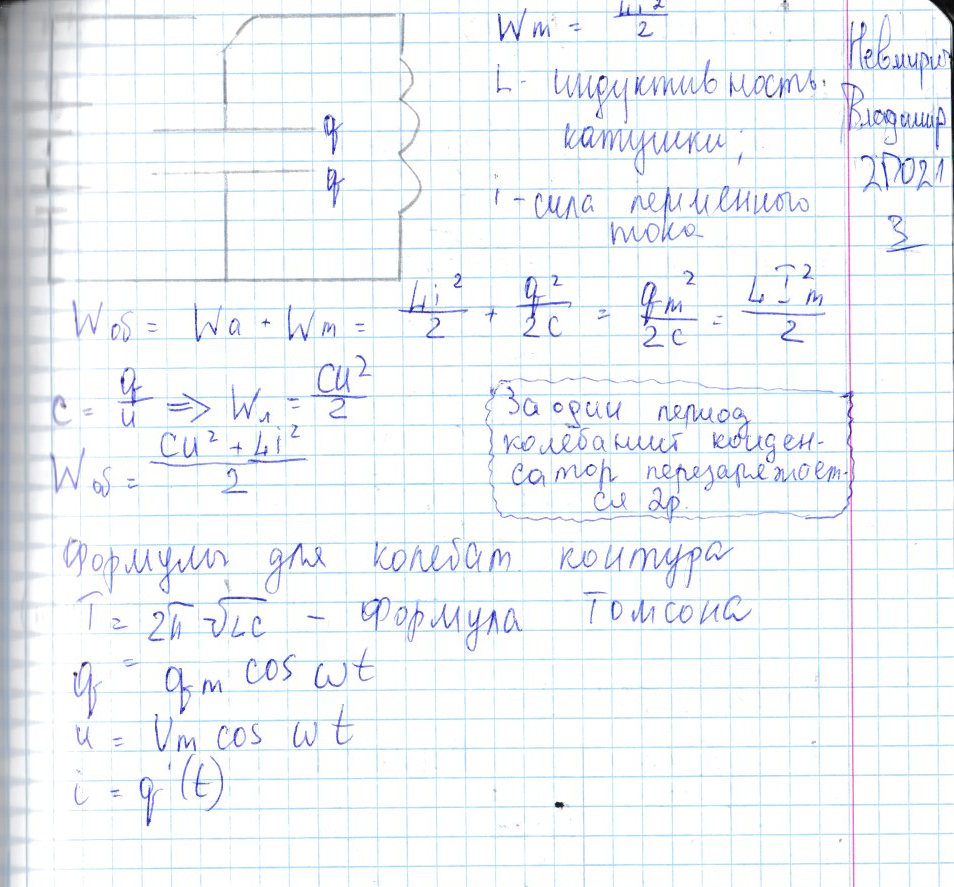 Wm = Li²/2
L - индуктивность
катушки;
i - сила перменного
тока
Невмирич
Владимир
2П021
3
q
q
Wоб = Wа + Wm = Li²/2 + q²/2c = qm²/2c = LI²m/2
c = q/u => Wл = CU²/2
Wоб = CU² + Li²/2
За один период
колебаний конден-
сатор перезаряжает-
ся 2р.
Формулы для колебат. контура
T = 2π √LC - Формула Томсона
q = qm cos ωt
u = Um cos ωt
i = q'(t)